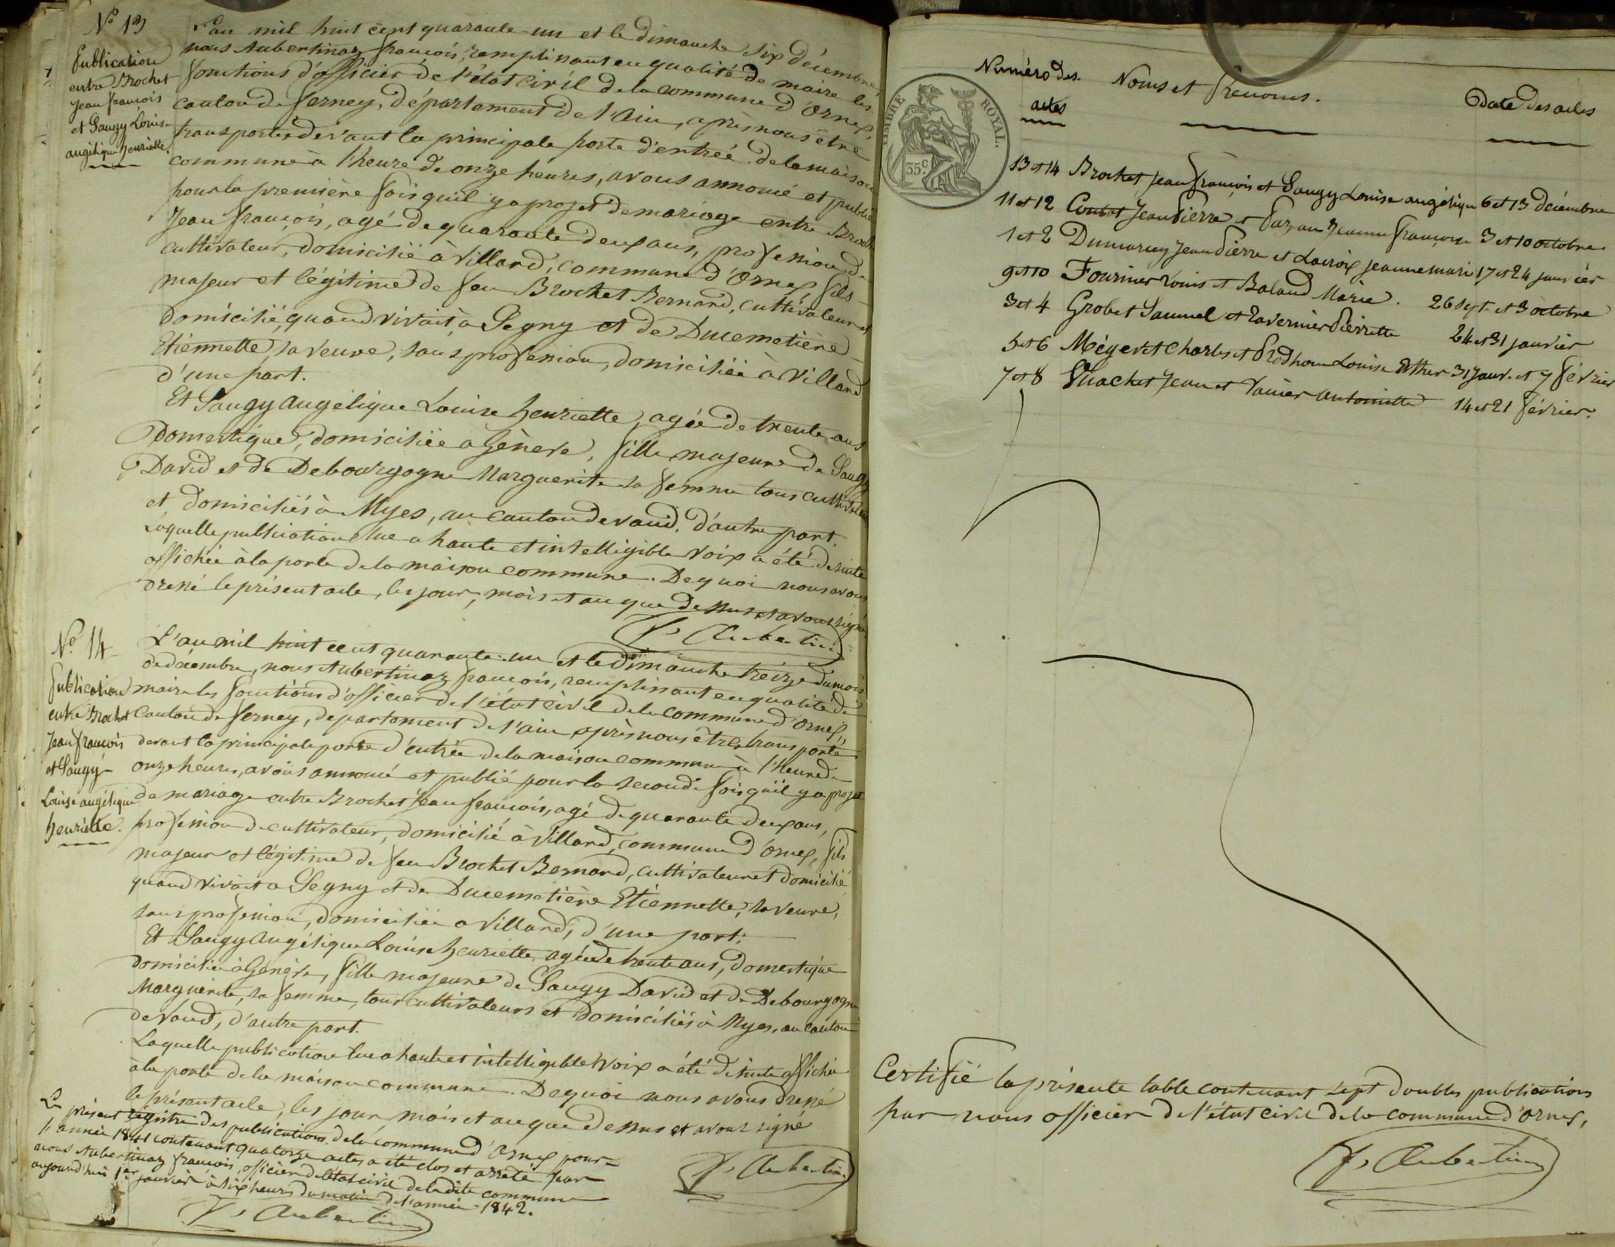 N° 13
Publication
entre Brochet
Jean françois
et Saugy Louise
angélique henriette.
L'an mil huit cent quarante un et le dimanche six décembre
nous Aubertinaz françois, remplissant en qualité de maire les
fonctions d'officier de l'état civil de la commune d'Ornex,
canton de ferney, département de l'Ain, après nous être
transportés devant la principale porte d'entrée de la maison
commune à l'heure de onze heures, avons annoncé et publié
pour la première fois qu'il y a projet de mariage entre Brochet
Jean françois, agé de quarante deux ans, profession de
cultivateur, domicilié à Villard, commune d'Ornex, fils
majeur et légitime de feu Brochet Bernard, cultivateur et
domicilié, quand vivait, à Segny et de Ducemetière
Etiennette, sa veuve, sans profession, domiciliée à Villard
d'une part.
Et Saugy Angélique Louise henriette, agée de trente ans
Domestique, domiciliée à Genève, fille majeure de Saugy
David et de Debourgogne Marguerite sa femme tous cultivateurs
et domiciliés à Myes, au canton de vaud, d'autre part.
Laquelle publication lue a haute et intelligible voix a été de suite
affichée à la porte de la maison commune. De quoi nous avons
dressé le présent acte, les jour, mois et an que dessus et avons signé
f.s Aubertin
N° 14
Publication
entre Brochet
Jean françois
et Saugy
Louise angélique
henriette.
L'an mil huit cent quarante un et le dimanche treize du mois
de décembre, nous Aubertinaz françois, remplissant en qualité de
maire les fonctions d'officier de l'état civil de la commune d'Ornex,
Canton de ferney, département de l'ain après nous être transporté
devant la principale porte d'entrée de la maison commune à l'heure de
onze heures, avons annoncé et publié pour la seconde fois qu'il y a projet
de mariage entre Brochet Jean françois, agé de quarante deux ans,
profession de cultivateur, domicilié à Villard, commune d'Ornex, fils
majeur et légitime de feu Brochet Bernard, cultivateur et domicilié
quand vivait a Segny et de Ducemetière Etiennette, sa veuve,
sans profession, domiciliée a Villard, d'une part.
Et Saugy Angélique Louise henriette, agée de trente ans, domestique
domiciliée à Genève, fille majeure de Saugy David et de Debourgogne
Marguerite, sa femme, tous cultivateurs et domiciliés à Myes, au canton
de vaud, d'autre part.
Laquelle publication lue a haute et intelligible voix a été de suite affichée
à la porte de la maison commune. De quoi nous avons dressé
le présent acte, les jour, mois et an que dessus et avons signé
f.s Aubertin
Le présent registre des publications de la commune d'Ornex pour
l'année 1841 contenant quatorze actes a été clos et arrêté par
nous Aubertinaz françois, officier de l'état civil de ladite commune
aujourd'hui 1er janvier à six heures du matin de l'année 1842.
f.s Aubertin
TIMBRE ROYAL.
35c
Numéro des actes
Noms et Prénoms.
Date des actes
13 et 14 Brochet Jean françois et Saugy Louise angélique 6 et 13 décembre
11 et 12 Jean Pierre et Jeanne françoise 3 et 10 octobre
1 et 2 Jean Pierre et Lacroix jeanne marie 17 et 24 janvier
9 et 10 Fournier Louis et Baland Marie. 26 sept. et 3 octobre
3 et 4 Grobet Samuel et Tavernier Pierrette 24 et 31 janvier
5 et 6 Charles et Prodhom Louise Esther 31 janv. et 7 février
7 et 8 Vuachet Jean et antoinette 14 et 21 février.
Certifié la présente table contenant sept doubles publications
par nous officier de l'état civil de la commune d'Ornex,
f.s Aubertin